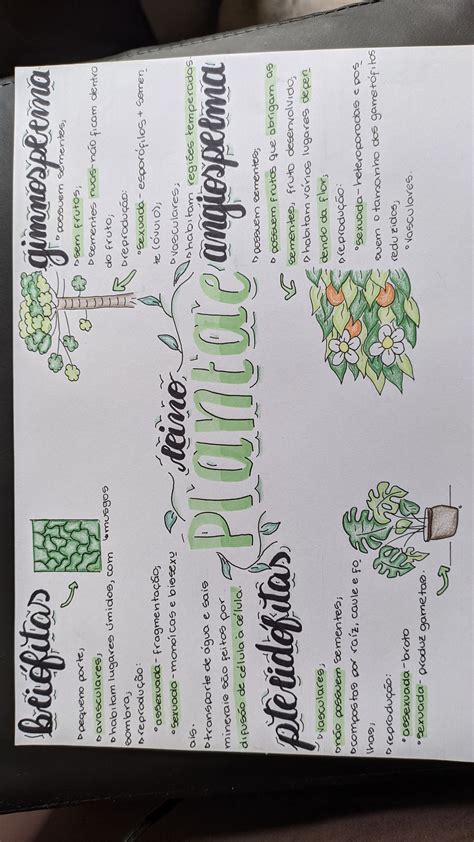 briófitas
▹pequeno porte;
▹avasculares;
▹habitam lugares úmidos, com
sombra;
musgos
▹reprodução:
•assexuada - fragmentação;
•sexuada - monoicas e bissexu
ais.
▹transporte de água e sais
minerais são feitos por
difusão de célula a célula.
gimnosperma
▹possuem sementes;
▹sem frutos;
▹sementes nuas - não ficam dentro
do fruto;
▹reprodução:
•sexuada - esporófilos + semen
te (óvulo);
▹vasculares;
▹habitam regiões temperadas
reino
Plantae
pteridófitas
▹vasculares;
▹não possuem sementes;
▹compostas por raíz, caule e fo
lhas;
▹reprodução:
•assexuada - broto
•sexuada - produz gametas.
angiosperma
▹possuem sementes;
▹possuem frutos que abrigam as
sementes, fruto desenvolvido,
▹habitam vários lugares depen
dendo da flor;
▹reprodução:
•sexuada - heterosporadas e pos
suem o tamanho dos gametófitos
reduzidos;
•vasculares.